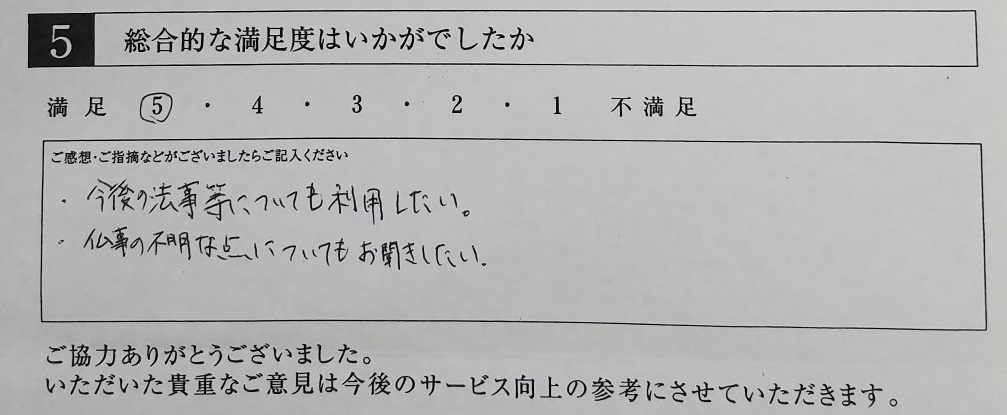 5 総合的な満足度はいかがでしたか
満足 5 ・ 4 ・ 3 ・ 2 ・ 1 不満足
ご感想・ご指摘などがございましたらご記入ください
・今後の法事等についても利用したい。
・仏事の不明な点についてもお聞きしたい.
ご協力ありがとうございました。
いただいた貴重なご意見は今後のサービス向上の参考にさせていただきます。